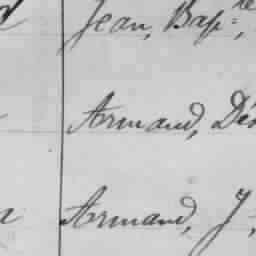 Jean, Bap.te,
Armand, Dés
Armand, J,